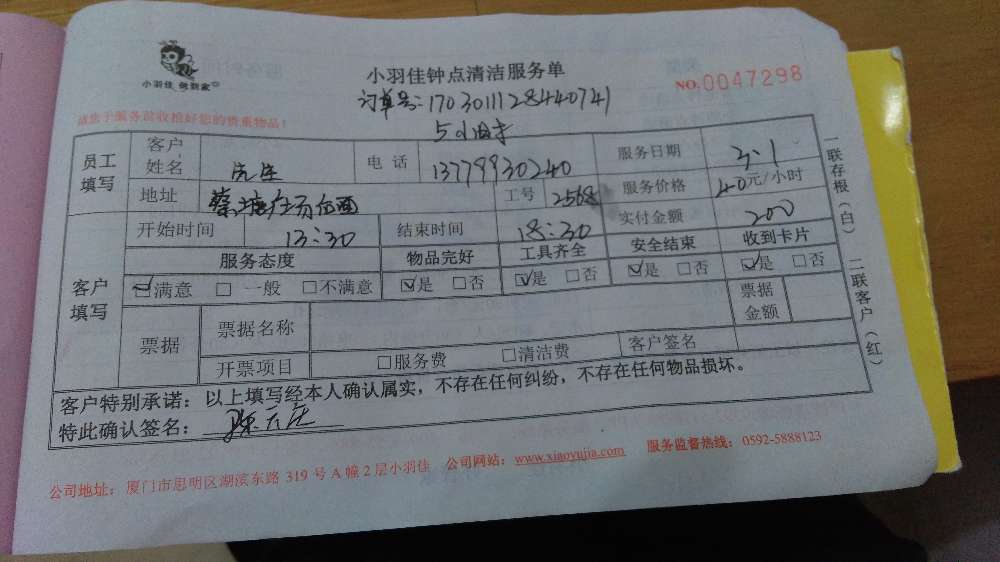 小羽佳 做到家
小羽佳钟点清洁服务单
NO.0047298
订单号:170301112844 0741
5小时
请您于服务前收捡好您的贵重物品!
员工填写 客户姓名 先生 电话 13779930240 服务日期 3.1
地址 蔡塘广场 工号 2568 服务价格 40元/小时
开始时间 13:30 结束时间 18:30 实付金额 200
客户填写 服务态度 物品完好 工具齐全 安全结束 收到卡片
☑满意 □一般 □不满意 ☑是 □否 ☑是 □否 ☑是 □否 ☑是 □否
票据 票据名称 票据金额
开票项目 □服务费 □清洁费 客户签名
客户特别承诺:以上填写经本人确认属实,不存在任何纠纷,不存在任何物品损坏。
特此确认签名:
一联存根(白) 二联客户(红)
公司地址:厦门市思明区湖滨东路 319 号 A 幢 2 层小羽佳 公司网站:www.xiaoyujia.com 服务监督热线:0592-5888123